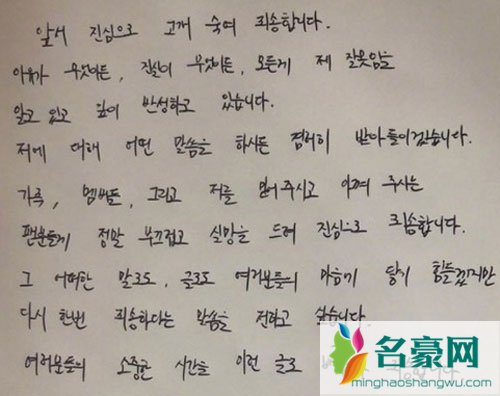 앞서 진심으로 고개 숙여 죄송합니다.
이유가 무엇이든, 진실이 무엇이든, 모든게 제 잘못임을
알고 있고 깊이 반성하고 있습니다.
저에 대해 어떤 말씀을 하시든 겸허히 받아들이겠습니다.
가족, 멤버들, 그리고 저를 믿어주시고 아껴 주시는
팬분들께 정말 부끄럽고 실망을 드려 진심으로 죄송합니다.
그 어떠한 말로도, 글로도 여러분들의 마음기 닿기 힘들겠지만
다시 한번 죄송하다는 말씀을 전하고 싶습니다.
여러분들의 소중한 시간을 이런 글로
名豪网
minghaoshangwu.com